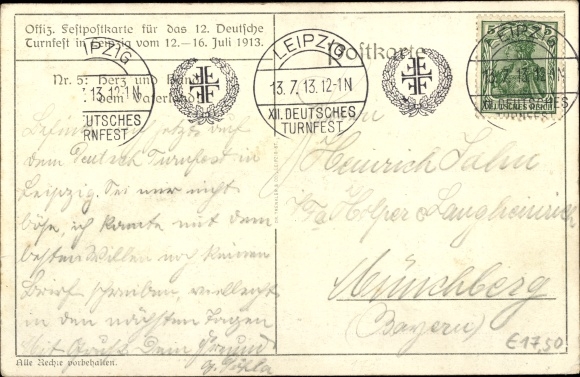 Offiz. Festpostkarte für das 12. Deutsche
Turnfest in Leipzig vom 12.—16. Juli 1913.
Nr. 5: Herz und Hand
dem Vaterland
Postkarte
LEIPZIG
13.7.13.12-1N
XII. DEUTSCHES
TURNFEST
IPZIG
.13.12-1N
EUTSCHES
RNFEST
LEIPZIG
13.7.13.12-1N
XII. DEUTSCHES
TURNFEST
Befinde mich jetzt auf
dem Deutsch Turnfest in
Leipzig. Sei nur nicht
böse, ich konnte mit dem
besten Willen noch keinen
Brief schreiben, vielleicht
in den nächsten Tagen
Mit Gruß Dein Freund
Heinrich
Münchberg
(Bayern)
€17,50
Alle Rechte vorbehalten.